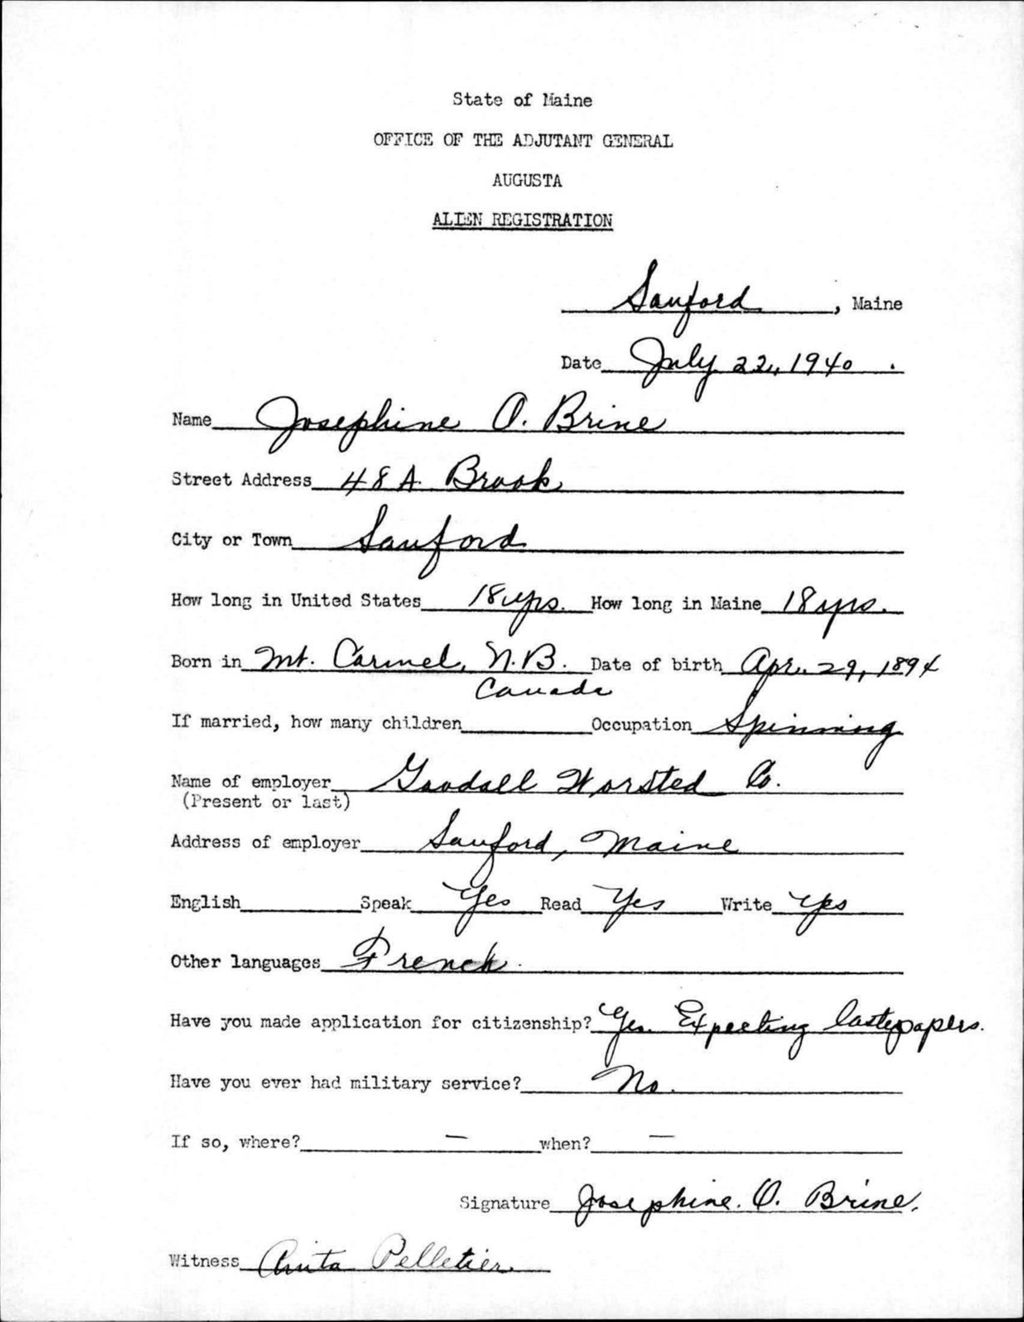 State of Maine
OFFICE OF THE ADJUTANT GENERAL
AUGUSTA
ALIEN REGISTRATION
Sanford, Maine
Date July 22, 1940.
Name Josephine O. Brine
Street Address 48 A. Brook
City or Town Sanford
How long in United States 18 yrs. How long in Maine 18 yrs.
Born in Mt. Carmel, N.B. Date of birth Apr. 29, 1894
Canada
If married, how many children Occupation Spinning
Name of employer Goodall Worsted Co.
(Present or last)
Address of employer Sanford, Maine
English Speak Yes Read Yes Write Yes
Other languages French.
Have you made application for citizenship? Yes. Expecting last papers.
Have you ever had military service? No.
If so, where? — when? —
Signature Josephine. O. Brine.
Witness Anita Pelletier.